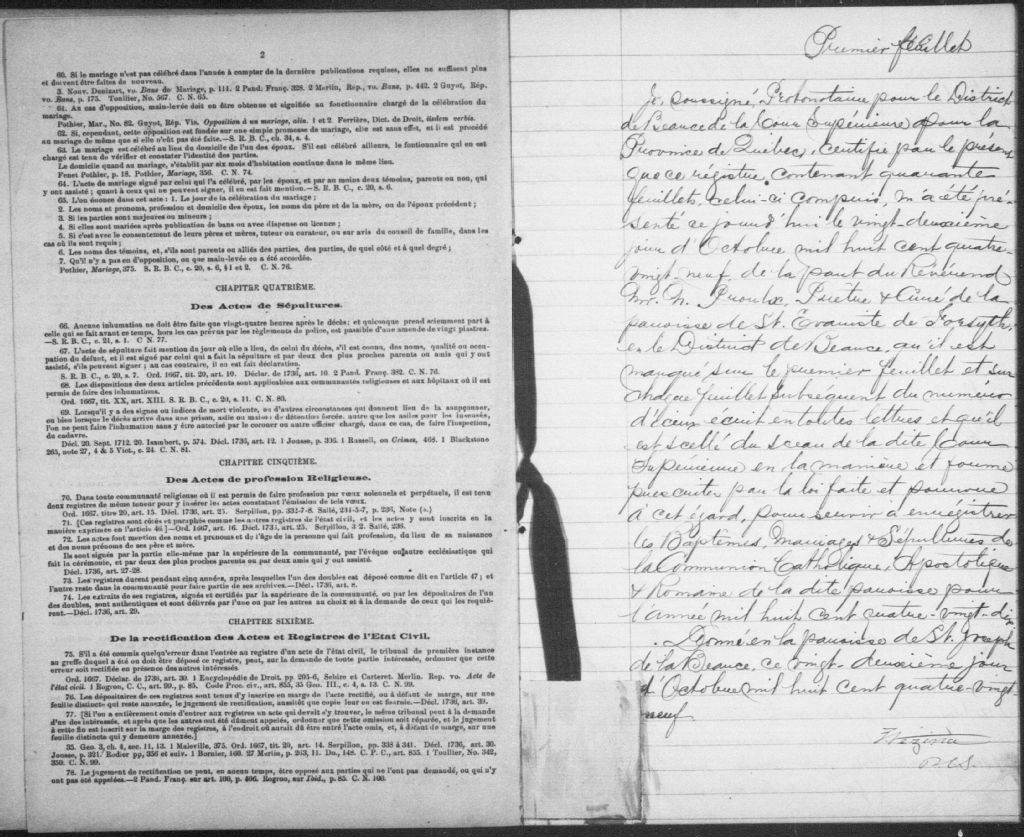 2
60. Si le mariage n'est pas célébré dans l'année à compter de la dernière publications requises, elles ne suffisent plus
et doivent être faites de nouveau.
3. Nouv. Denizart, vo. Bans de Mariage, p. 111. 2 Pand. Franç. 328. 2 Merlin, Rep., vo. Bans, p. 442. 2 Guyot, Rép.
vo. Bans, p. 175. Toullier, No. 567. C. N. 65.
61. Au cas d'opposition, main-levée doit en être obtenue et signifiée au fonctionnaire chargé de la célébration du
mariage.
Pothier, Mar., No. 82. Guyot, Rép. Vis. Opposition à un mariage, alin. 1 et 2. Ferrière, Dict. de Droit, iisdem verbis.
62. Si, cependant, cette opposition est fondée sur une simple promesse de mariage, elle est sans effet, et il est procédé
au mariage de même que si elle n'eût pas été faite.—S. R. B. C., ch. 34, s. 4.
63. Le mariage est célébré au lieu du domicile de l'un des époux. S'il est célébré ailleurs, le fontionnaire qui en est
chargé est tenu de vérifier et constater l'identité des parties.
Le domicile quant au mariage, s'établit par six mois d'habitation continue dans le même lieu.
Fenet Pothier, p. 18. Pothier, Mariage, 356. C. N. 74.
64. L'acte de mariage signé par celui qui l'a célébré, par les époux, et par au moins deux témoins, parents ou non, qui
y ont assisté ; quant à ceux qui ne peuvent signer, il en est fait mention.—S. R. B. C., c. 20, s. 6.
65. L'on énonce dans cet acte : 1. Le jour de la célébration du mariage ;
2. Les noms et pronoms, profession et domicile des époux, les noms du père et de la mère, ou de l'époux précédent ;
3. Si les parties sont majeures ou mineurs ;
4. Si elles sont mariées après publication de bans ou avec dispense ou licence ;
5. Si c'est avec le consentement de leurs pères et mères, tuteur ou curateur, ou sur avis du conseil de famille, dans les
cas où ils sont requis ;
6. Les noms des témoins, et, s'ils sont parents ou alliés des parties, des parties, de quel côté et à quel degré ;
7. Qu'il n'y a pas eu d'opposition, ou que main-levée en a été accordée.
Pothier, Mariage, 375. S. R. B. C., c. 20, s. 6, §1 et 2. C. N. 76.
CHAPITRE QUATRIÈME.
Des Actes de Sépultures.
66. Aucune inhumation ne doit être faite que vingt-quatre heures après le décès; et quiconque prend sciemment part à
celle qui se fait avant ce temps, hors les cas prévus par les règlements de police, est passible d'une amende de vingt piastres.
—S. R. B. C., c. 21, s. 1. C N. 77.
67. L'acte de sépulture fait mention du jour où elle a lieu, de celui du décès, s'il est connu, des noms, qualité ou occu-
pation du défunt, et il est signé par celui qui a fait la sépulture et par deux des plus proches parents ou amis qui y ont
assisté, s'ils peuvent signer ; au cas contraire, il en est fait déclaration.
S. R. B. C., c. 20, s. 7. Ord. 1667, tit. 20, art. 10. Déclar. de 1736, art. 10. 2 Pand. Franç. 382. C. N. 76.
68. Les dispositions des deux articles précédents sont applicables aux communautés religieuses et aux hôpitaux où il est
permis de faire des inhumations.
Ord. 1667, tit. XX, art. XIII. S. R. B. C., c. 20, s. 11. C. N. 80.
69. Lorsqu'il y a des signes ou indices de mort violente, ou d'autres circonstances qui donnent lieu de la soupçonner,
ou bien lorsque le décès arrive dans une prison, asile ou maison de détention forcée, autre que les asiles pour les insensés,
l'on ne peut faire l'inhumation sans y être autorisé par le coroner ou autre officier chargé, dans ce cas, de faire l'inspection,
du cadavre.
Décl. 20. Sept. 1712. 20. Isambert, p. 574. Décl. 1736, art. 12. 1 Jousse, p. 336. 1 Russell, on Crimes, 468. 1 Blackstone
265, note 27, 4 & 5 Vict., c. 24. C. N. 81.
CHAPITRE CINQUIÈME.
Des Actes de profession Religieuse.
70. Dans toute communauté religieuse où il est permis de faire profession par vœux solennels et perpétuels, il est tenu
deux registres de même teneur pour y insérer les actes constatant l'émission de tels vœux.
Ord. 1667. titre 20, art. 15. Décl. 1736, art. 25. Serpillon, pp. 332-7-8. Sallé, 234-5-7, p. 236, Note (a.)
71. [Ces registres sont côtés et paraphés comme les autres registres de l'état civil, et les actes y sont inscrits en la
manière exprimée en l'article 46.]—Ord. 1667, art. 16. Décl. 1736, art. 25. Serpillon, 3 2. Sallé, 238.
72. Les actes font mention des noms et prenoms et de l'âge de la personne qui fait profession, du lieu de sa naissance
et des noms prénoms de ses père et mère.
Ils sont signés par la partie elle-même par la supérieure de la communauté, par l'évêque ou autre ecclésiastique qui
fait la cérémonie, et par deux des plus proches parents ou par deux amis qui y ont assisté.
Décl. 1736, art. 27-28.
73. Les registres durent pendant cinq années, après lesquelles l'un des doubles est déposé comme dit en l'article 47 ; et
l'autre reste dans la communauté pour faire partie de ses archives.—Décl. 1736, art. s.
74. Les extraits de ses registres, signés et certifiés par la supérieure de la communauté, ou par les dépositaires de l'un
des doubles, sont authentiques et sont délivrés par l'une ou par les autres au choix et à la demande de ceux qui les requiè-
rent.—Décl. 1736, art. 29.
CHAPITRE SIXIÈME.
De la rectification des Actes et Registres de l'Etat Civil.
75. S'il a été commis quelqu'erreur dans l'entrée au registre d'un acte de l'état civil, le tribunal de première instance
au greffe duquel a été ou doit être déposé ce registre, peut, sur la demande de toute partie intéressée, ordonner que cette
erreur soit rectifiée en présence des autres intéressés
Ord. 1667. Déclar. de 1736, art. 30. 1 Encyclopédie de Droit. pp. 205-6, Sebire et Carteret. Merlin. Rep. vo. Acte de
l'état civil. 1 Rogron, C. C., art. 99., p. 85. Code Proc. civ., art. 855, 35 Geo. III., c. 4, s. 13. C. N. 99.
76. Les dépositaires de ces registres sont tenus d'y inscrire en marge de l'acte rectifié, ou à défaut de marge, sur une
feuille distincte qui reste annexée, le jugement de rectification, aussitôt que copie leur en est fournie.—Décl. 1736, art. 30.
77. [Si l'on a entièrement omis d'entrer aux registres un acte qui devait s'y trouver, le même tribunal peut à la demande
d'un des intéressés, et après que les autres ont été dûment appelés, ordonner que cette omission soit réparée, et le jugement
à cette fin est inscrit sur la marge des registres, à l'endroit où aurait dû être entré l'acte omis, et, à défaut de marge, sur une
feuille distincte qui y demeure annexée.]
35. Geo. 3, ch. 4, sec. 11, 13. 1 Maleville, 375. Ord. 1667, tit. 20, art. 14. Serpillon, pp. 338 à 341. Décl. 1736, art. 30.
Jousse, p. 321. Rodier pp, 356 et suiv. 1 Bornier, 160. 27 Merlin, p. 263, 11. Do., 148. C. P. C., art. 855. 1 Toullier, No. 342,
350. C. N. 99.
78. Le jugement de rectification ne peut, en aucun temps, être opposé aux parties qui ne l'ont pas demandé, ou qui n'y
ont pas été appelées.—2 Pand. Franç. sur art. 100, p. 406. Rogron, sur Ibid., p. 85. C. N. 100.
Premier feuillet
Je, soussigné, Protonotaire pour le District
de Beauce de la Cour Supérieure pour la
Province de Québec, certifie par le présent
que ce régistre, contenant quarante
feuillets, celui-ci compris, m'a été pré-
senté ce jourd'hui le vingt-deuxième
jour d'Octobre mil huit cent quatre-
vingt-neuf, de la part du Révérend
Mr. N. Proulx, Prêtre & Curé de la
paroisse de St. Evariste de Forsyth,
en le District de Beauce, qu'il est
marqué sur le premier feuillet et sur
chaque feuillet subséquent du numéro
d'iceux écrit en toutes lettres et qu'il
est scellé du sceau de la dite Cour
Supérieure en la manière et forme
prescrite par la loi faite et pourvue
à cet égard, pour servir à enregistrer
les Baptêmes, Mariages & Sépultures de
la Communion Catholique, Apostolique
& Romaine de la dite paroisse pour
l'année mil huit cent quatre-vingt-dix
- Donné en la paroisse de St. Joseph
de la Beauce, ce vingt-deuxième jour
d'Octobre mil huit cent quatre-vingt-
neuf
P.C.S.